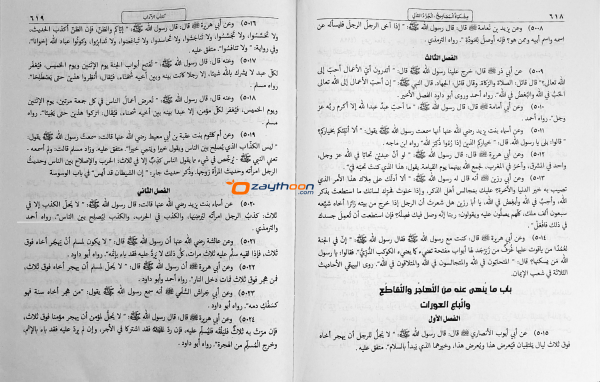 ٦١٨
مشكاة المصابيح - الجزء الثاني
٥٠٠٨ - وعن يزيد بن نعامة قال: قال رسول الله ﷺ: "إذا آخى الرجل الرجل فليسأله عن
اسمه واسم أبيه وممن هو؟ فإنه أوصل للمودة". رواه الترمذي.
الفصل الثالث
٥٠٠٩ - عن أبي ذر قال: خرج علينا رسول الله ﷺ قال: "أتدرون أي الأعمال أحب إلى
الله تعالى؟" قال قائل: الصلاة والزكاة. وقال قائل: الجهاد. قال النبي ﷺ: "إن أحب الأعمال إلى الله تعالى
الحب في الله والبغض في الله". رواه أحمد وروى أبو داود الفصل الأخير.
٥٠١٠ - وعن أبي أمامة قال: قال رسول الله ﷺ: "ما أحب عبد عبدا لله إلا أكرم ربه عز
وجل". رواه أحمد.
٥٠١١ - وعن أسماء بنت يزيد رضي الله عنها أنها سمعت رسول الله ﷺ يقول: "ألا أنبئكم بخياركم؟"
قالوا: بلى يا رسول الله. قال: "خياركم الذين إذا رُؤوا ذُكر الله". رواه ابن ماجه.
٥٠١٢ - وعن أبي هريرة قال: قال رسول الله ﷺ: "لو أن عبدين تحابا في الله عز وجل،
واحد في المشرق، وآخر في المغرب، لجمع الله بينهما يوم القيامة. يقول: هذا الذي كنت تحبه في".
٥٠١٣ - وعن أبي رزين أنه قال له رسول الله ﷺ: "ألا أدلك على ملاك هذا الأمر الذي
تصيب به خير الدنيا والآخرة؟ عليك بمجالس أهل الذكر، وإذا خلوت فحرك لسانك ما استطعت بذكر
الله، وأحب في الله وأبغض في الله، يا أبا رزين هل شعرت أن الرجل إذا خرج من بيته زائرا أخاه شيعه
سبعون ألف ملك، كلهم يصلون عليه ويقولون: ربنا إنه وصل فيك فصله؟ فإن استطعت أن تعمل جسدك
في ذلك فافعل".
٥٠١٤ - وعن أبي هريرة قال: كنت مع رسول الله ﷺ فقال رسول الله ﷺ: "إن في الجنة
لعمدا من ياقوت عليها غرف من زبرجد لها أبواب مفتحة تضيء كما يضيء الكوكب الدري". فقالوا: يا رسول
الله من يسكنها؟ قال: "المتحابون في الله والمتجالسون في الله والمتلاقون في الله". روى البيهقي الأحاديث
الثلاثة في شعب الإيمان.
باب ما ينهى عنه من التهاجر والتقاطع
واتباع العورات
الفصل الأول
٥٠١٥ - عن أبي أيوب الأنصاري قال: قال رسول الله ﷺ: "لا يحل للرجل أن يهجر أخاه
فوق ثلاث ليال يلتقيان فيعرض هذا ويعرض هذا، وخيرهما الذي يبدأ بالسلام". متفق عليه.
كتاب الآداب
٦١٩
٥٠١٦ - وعن أبي هريرة قال: قال رسول الله ﷺ: "إياكم والظن، فإن الظن أكذب الحديث،
ولا تحسسوا، ولا تجسسوا، ولا تناجشوا، ولا تحاسدوا، ولا تباغضوا، ولا تدابروا، وكونوا عباد الله إخوانا".
وفي رواية: "ولا تنافسوا". متفق عليه.
٥٠١٧ - وعنه قال: قال رسول الله ﷺ: "تفتح أبواب الجنة يوم الاثنين ويوم الخميس، فيغفر
لكل عبد لا يشرك بالله شيئا، إلا رجلا كانت بينه وبين أخيه شحناء، فيقال: أنظروا هذين حتى يصطلحا".
رواه مسلم.
٥٠١٨ - وعنه قال: قال رسول الله ﷺ: "تعرض أعمال الناس في كل جمعة مرتين، يوم الاثنين
ويوم الخميس، فيغفر لكل مؤمن، إلا عبد بينه وبين أخيه شحناء، فيقال: اتركوا هذين حتى يفيئا". رواه
مسلم.
٥٠١٩ - وعن أم كلثوم بنت عقبة بن أبي معيط رضي الله عنها قالت: سمعت رسول الله ﷺ يقول:
"ليس الكذاب الذي يصلح بين الناس ويقول خيرا وينمي خيرا". متفق عليه. وزاد مسلم قالت: ولم أسمعه -
تعني النبي ﷺ - يرخص في شيء مما يقول الناس كذب إلا في ثلاث: الحرب والإصلاح بين الناس وحديث
الرجل امرأته وحديث المرأة زوجها. وذكر حديث جابر: "إن الشيطان قد أيس" في باب الوسوسة
الفصل الثاني
٥٠٢٠ - عن أسماء بنت يزيد رضي الله عنها قالت: قال رسول الله ﷺ: "لا يحل الكذب إلا في
ثلاث: كذب الرجل امرأته ليرضيها، والكذب في الحرب، والكذب ليصلح بين الناس". رواه أحمد
والترمذي.
٥٠٢١ - وعن عائشة رضي الله عنها أن رسول الله ﷺ قال: "لا يكون لمسلم أن يهجر أخاه فوق
ثلاث، فإذا لقيه سلم عليه ثلاث مرات، كل ذلك لا يرد عليه فقد باء بإثمه". رواه أبو داود.
٥٠٢٢ - وعن أبي هريرة أن رسول الله ﷺ قال: "لا يحل لمسلم أن يهجر أخاه فوق ثلاث،
فمن هجر فوق ثلاث فمات دخل النار". رواه أحمد وأبو داود.
٥٠٢٣ - وعن أبي خراش السلمي أنه سمع رسول الله ﷺ يقول: "من هجر أخاه سنة فهو
كسفك دمه". رواه أبو داود.
٥٠٢٤ - وعن أبي هريرة قال: قال رسول الله ﷺ: "لا يحل لمؤمن أن يهجر مؤمنا فوق ثلاث،
فإن مرت به ثلاث فليلقه فليسلم عليه، فإن رد عليه السلام فقد اشتركا في الأجر، وإن لم يرد عليه فقد باء بالإثم،
وخرج المسلم من الهجرة". رواه أبو داود.
Ozaythoon.com